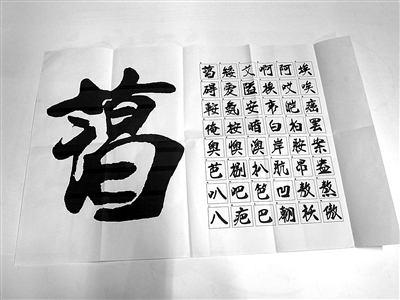 蔼
蔼矮艾啊阿埃
碍爱隘挨哎唉
鞍氨安哀皑癌
俺按暗白柏罢
奥懊澳岸胺案
芭捌扒肮昂盎
叭吧笆凹敖熬
八疤巴翱袄傲